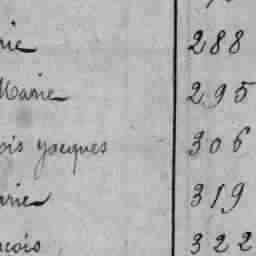 rie 288
Marie 295
ois Jacques 306
arie 319
ncois 322